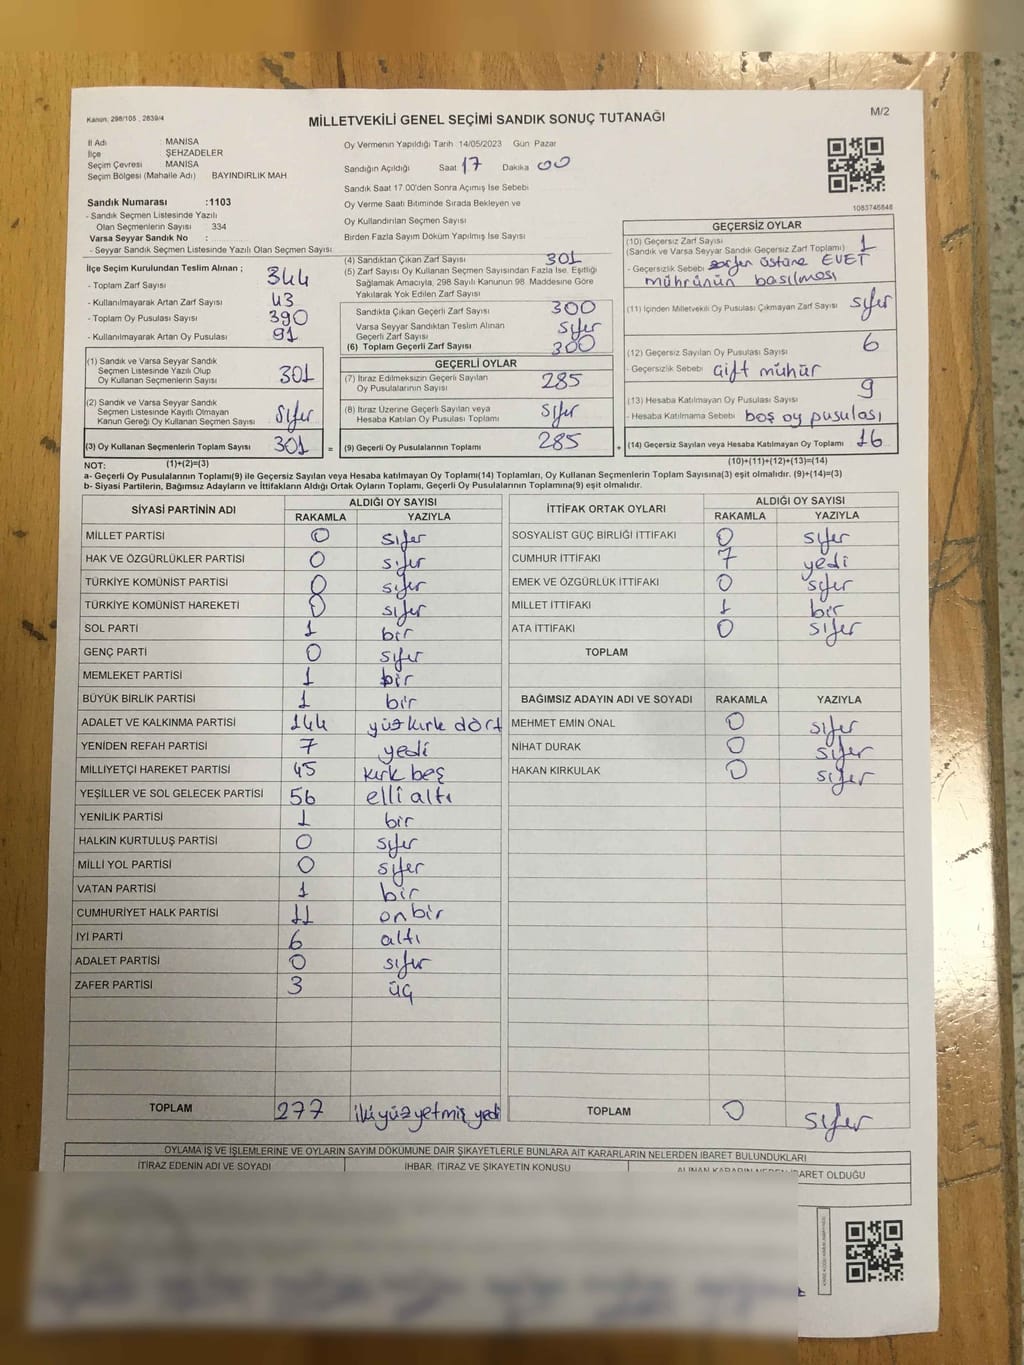 Kanun; 298/105 , 2839/4
MİLLETVEKİLİ GENEL SEÇİMİ SANDIK SONUÇ TUTANAĞI
M/2
İl Adı : MANİSA
İlçe : ŞEHZADELER
Seçim Çevresi : MANİSA
Seçim Bölgesi (Mahalle Adı) BAYINDIRLIK MAH
Sandık Numarası :1103
- Sandık Seçmen Listesinde Yazılı
Olan Seçmenlerin Sayısı : 334
Varsa Seyyar Sandık No :
- Seyyar Sandık Seçmen Listesinde Yazılı Olan Seçmen Sayısı:
Oy Vermenin Yapıldığı Tarih 14/05/2023 Gün Pazar
Sandığın Açıldığı Saat 17 Dakika 00
Sandık Saat 17.00'den Sonra Açımış İse Sebebi
Oy Verme Saati Bitiminde Sırada Bekleyen ve
Oy Kullandırılan Seçmen Sayısı
Birden Fazla Sayım Döküm Yapılmış İse Sayısı
1083746848
İlçe Seçim Kurulundan Teslim Alınan ;
- Toplam Zarf Sayısı 344
- Kullanılmayarak Artan Zarf Sayısı 43
- Toplam Oy Pusulası Sayısı 390
- Kullanılmayarak Artan Oy Pusulası 91
(1) Sandık ve Varsa Seyyar Sandık
Seçmen Listesinde Yazılı Olup
Oy Kullanan Seçmenlerin Sayısı 301
(2) Sandık ve Varsa Seyyar Sandık
Seçmen Listesinde Kayıtlı Olmayan
Kanun Gereği Oy Kullanan Seçmen Sayısı sıfır
(3) Oy Kullanan Seçmenlerin Toplam Sayısı 301 =
(4) Sandıktan Çıkan Zarf Sayısı 301
(5) Zarf Sayısı Oy Kullanan Seçmen Sayısından Fazla İse, Eşitliği
Sağlamak Amacıyla, 298 Sayılı Kanunun 98. Maddesine Göre
Yakılarak Yok Edilen Zarf Sayısı
Sandıkta Çıkan Geçerli Zarf Sayısı 300
Varsa Seyyar Sandıktan Teslim Alınan
Geçerli Zarf Sayısı sıfır
(6) Toplam Geçerli Zarf Sayısı 300
GEÇERLİ OYLAR
(7) İtiraz Edilmeksizin Geçerli Sayılan
Oy Pusulalarının Sayısı 285
(8) İtiraz Üzerine Geçerli Sayılan veya
Hesaba Katılan Oy Pusulası Toplamı sıfır
(9) Geçerli Oy Pusulalarının Toplamı 285 +
GEÇERSİZ OYLAR
(10) Geçersiz Zarf Sayısı 1
(Sandık ve Varsa Seyyar Sandık Geçersiz Zarf Toplamı)
- Geçersizlik Sebebi zarfın üstüne EVET
mührünün basılması
(11) İçinden Milletvekili Oy Pusulası Çıkmayan Zarf Sayısı sıfır
(12) Geçersiz Sayılan Oy Pusulası Sayısı 6
- Geçersizlik Sebebi çift mühür
(13) Hesaba Katılmayan Oy Pusulası Sayısı 9
- Hesaba Katılmama Sebebi boş oy pusulası
(14) Geçersiz Sayılan veya Hesaba Katılmayan Oy Toplamı 16
NOT: (1)+(2)=(3)
(10)+(11)+(12)+(13)=(14)
a- Geçerli Oy Pusulalarının Toplamı(9) ile Geçersiz Sayılan veya Hesaba katılmayan Oy Toplamı(14) Toplamları, Oy Kullanan Seçmenlerin Toplam Sayısına(3) eşit olmalıdır. (9)+(14)=(3)
b- Siyasi Partilerin, Bağımsız Adayların ve İttifakların Aldığı Oyların Toplamı, Geçerli Oy Pusulalarının Toplamına(9) eşit olmalıdır.
SİYASİ PARTİNİN ADI ALDIĞI OY SAYISI
RAKAMLA YAZIYLA
MİLLET PARTİSİ 0 sıfır
HAK VE ÖZGÜRLÜKLER PARTİSİ 0 sıfır
TÜRKİYE KOMÜNİST PARTİSİ 0 sıfır
TÜRKİYE KOMÜNİST HAREKETİ 0 sıfır
SOL PARTİ 1 bir
GENÇ PARTİ 0 sıfır
MEMLEKET PARTİSİ 1 bir
BÜYÜK BİRLİK PARTİSİ 1 bir
ADALET VE KALKINMA PARTİSİ 144 yüzkırk dört
YENİDEN REFAH PARTİSİ 7 yedi
MİLLİYETÇİ HAREKET PARTİSİ 45 kırk beş
YEŞİLLER VE SOL GELECEK PARTİSİ 56 elli altı
YENİLİK PARTİSİ 1 bir
HALKIN KURTULUŞ PARTİSİ 0 sıfır
MİLLİ YOL PARTİSİ 0 sıfır
VATAN PARTİSİ 1 bir
CUMHURİYET HALK PARTİSİ 11 onbir
İYİ PARTİ 6 altı
ADALET PARTİSİ 0 sıfır
ZAFER PARTİSİ 3 üç
TOPLAM 277 ikiyüzyetmiş yedi
İTTİFAK ORTAK OYLARI ALDIĞI OY SAYISI
RAKAMLA YAZIYLA
SOSYALİST GÜÇ BİRLİĞİ İTTİFAKI 0 sıfır
CUMHUR İTTİFAKI 7 yedi
EMEK VE ÖZGÜRLÜK İTTİFAKI 0 sıfır
MİLLET İTTİFAKI 1 bir
ATA İTTİFAKI 0 sıfır
TOPLAM
BAĞIMSIZ ADAYIN ADI VE SOYADI RAKAMLA YAZIYLA
MEHMET EMİN ÖNAL 0 sıfır
NİHAT DURAK 0 sıfır
HAKAN KIRKULAK 0 sıfır
TOPLAM 0 sıfır
OYLAMA İŞ VE İŞLEMLERİNE VE OYLARIN SAYIM DÖKÜMÜNE DAİR ŞİKAYETLERLE BUNLARA AİT KARARLARIN NELERDEN İBARET BULUNDUKLARI
İTİRAZ EDENİN ADI VE SOYADI İHBAR, İTİRAZ VE ŞİKAYETİN KONUSU ALINAN KARARIN NEDEN İBARET OLDUĞU